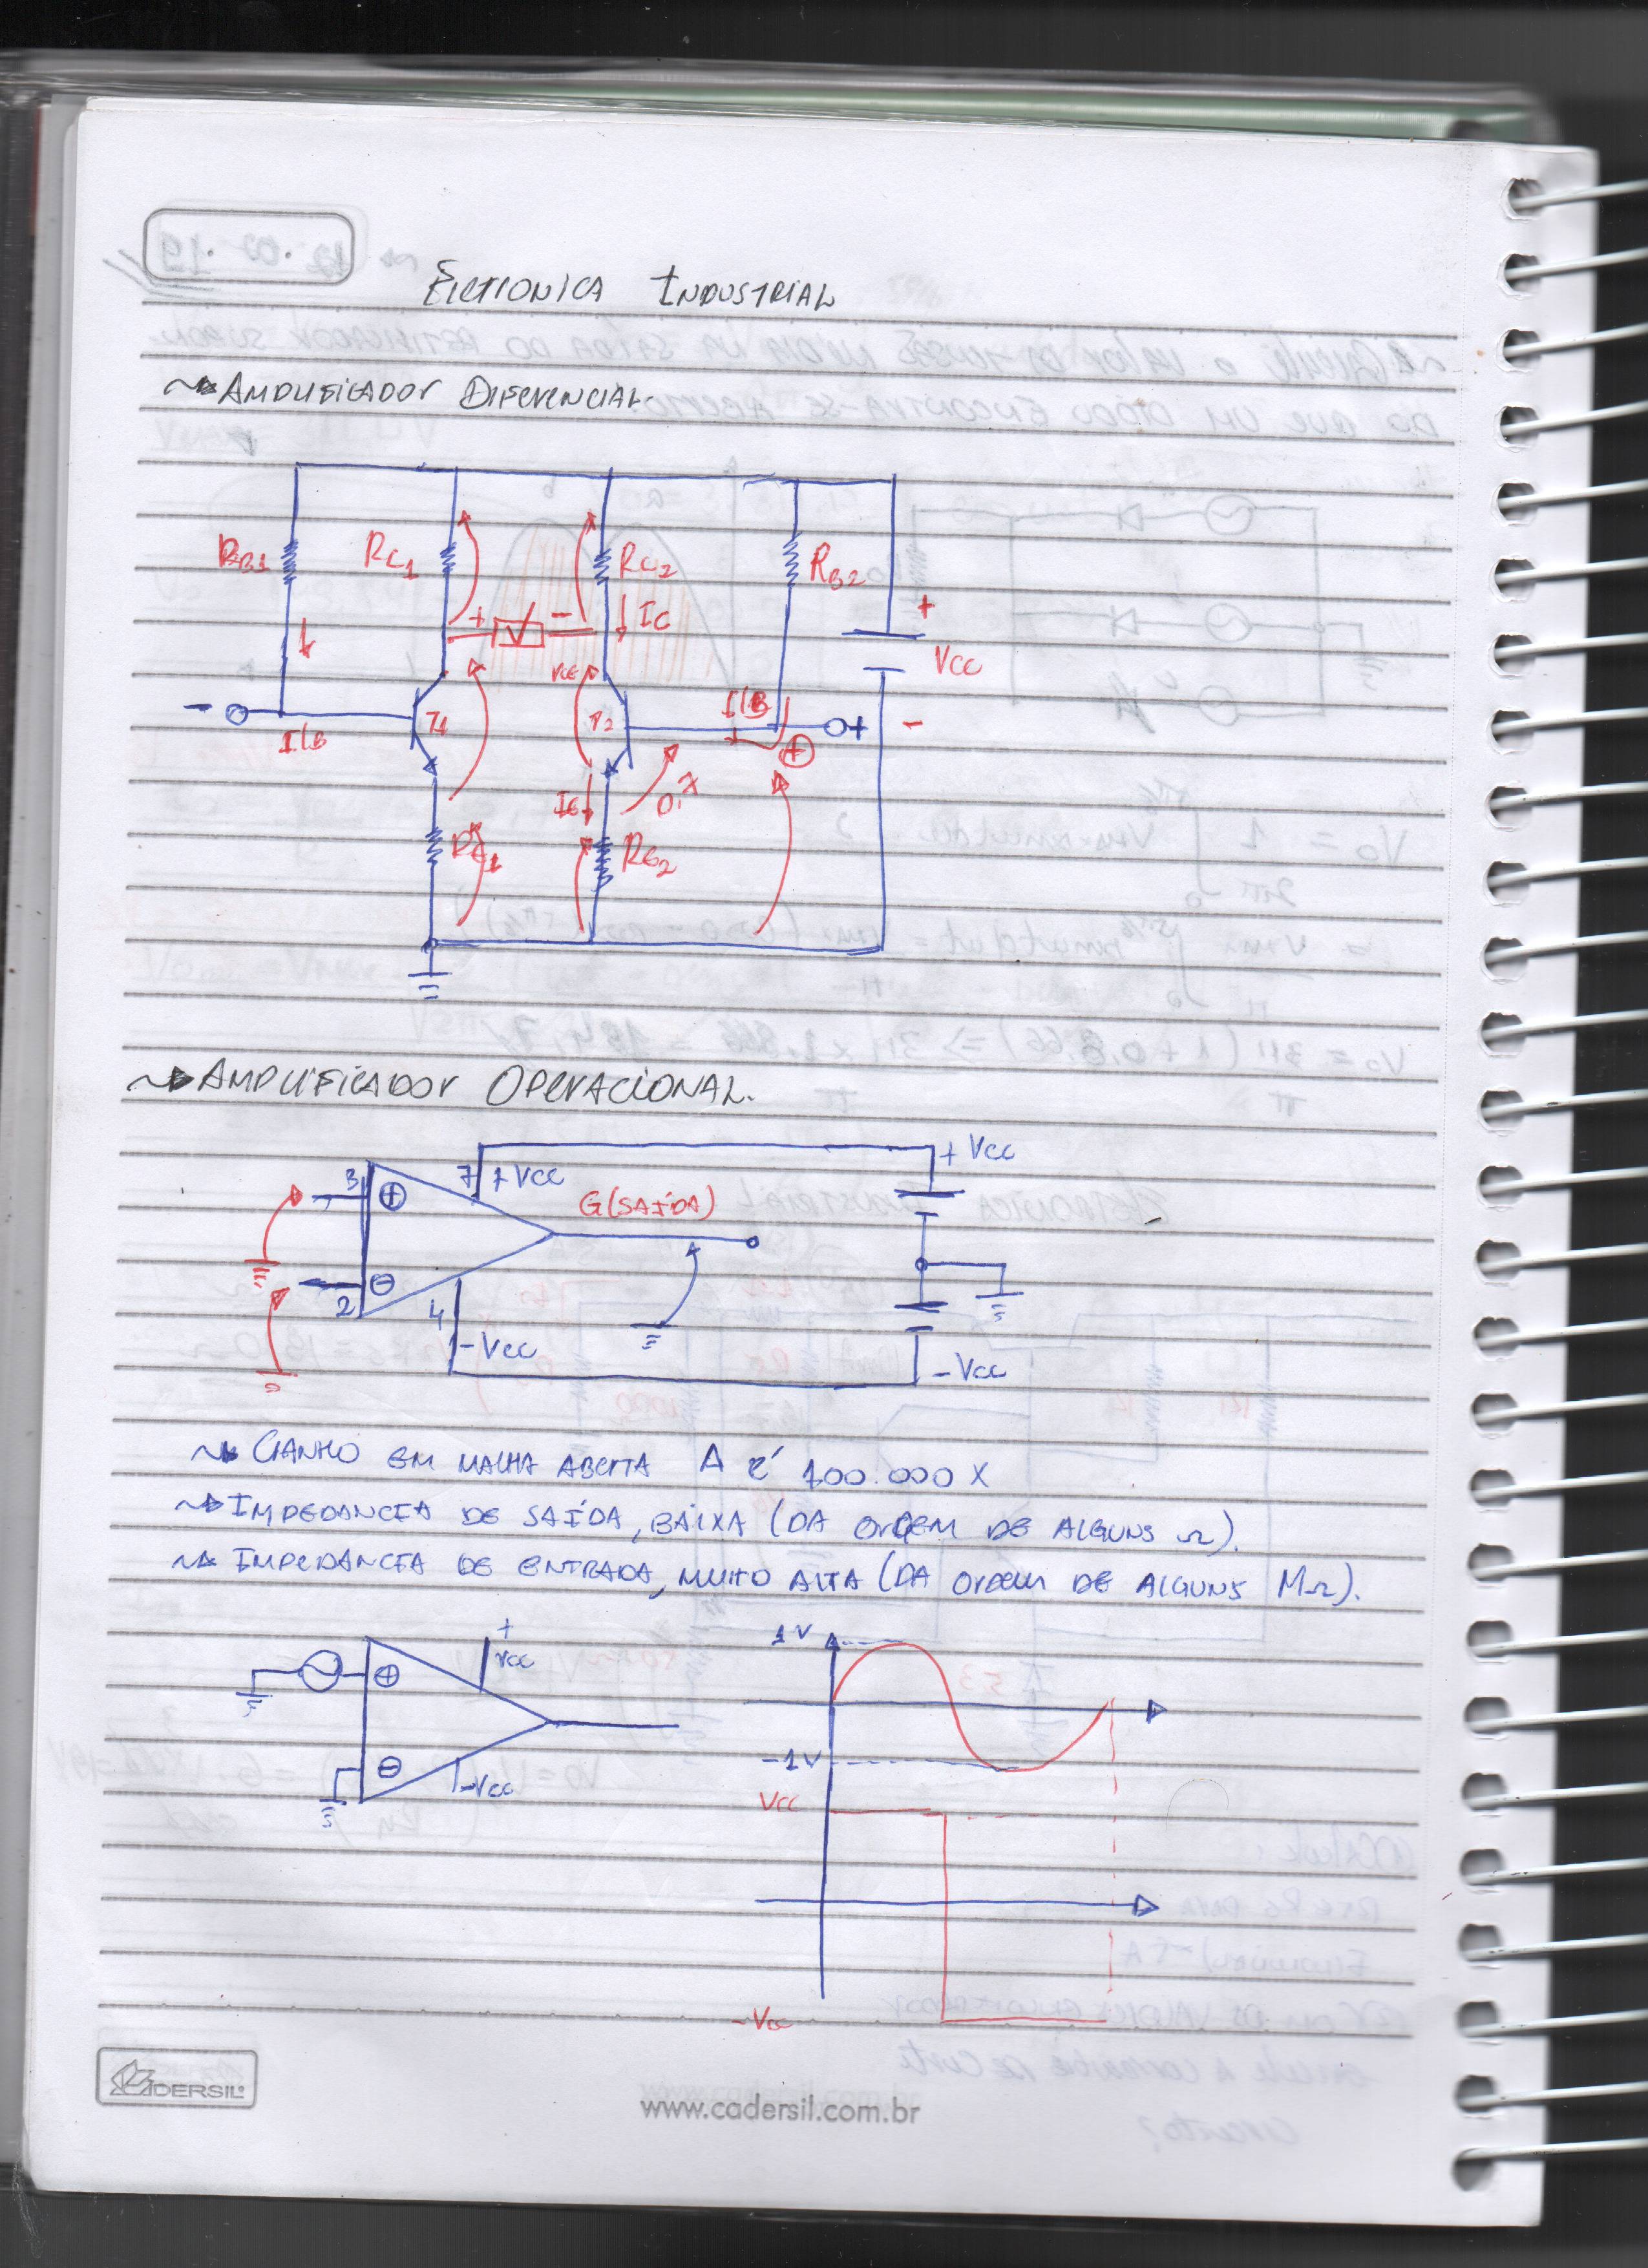 Eletronica Industrial
Amplificador Diferencial.
RB1
RC1
RC2
RB2
+ V -
IC
+
VCC
VCE
-
T1
T2
IB
IB
+
+
IB
IE
0,7
RE1
RE2
Amplificador Operacional.
3
+
7
+Vcc
+ Vcc
6(SAÍDA)
-
2
4
-Vcc
-Vcc
Ganho em malha aberta A é 100.000 X
Impedancia de saída, baixa (da ordem de alguns Ω).
Impedância de entrada, muito alta (da ordem de alguns MΩ).
+
Vcc
+
-
-Vcc
1V
-1V
Vcc
-Vcc
CADERSIL
www.cadersil.com.br